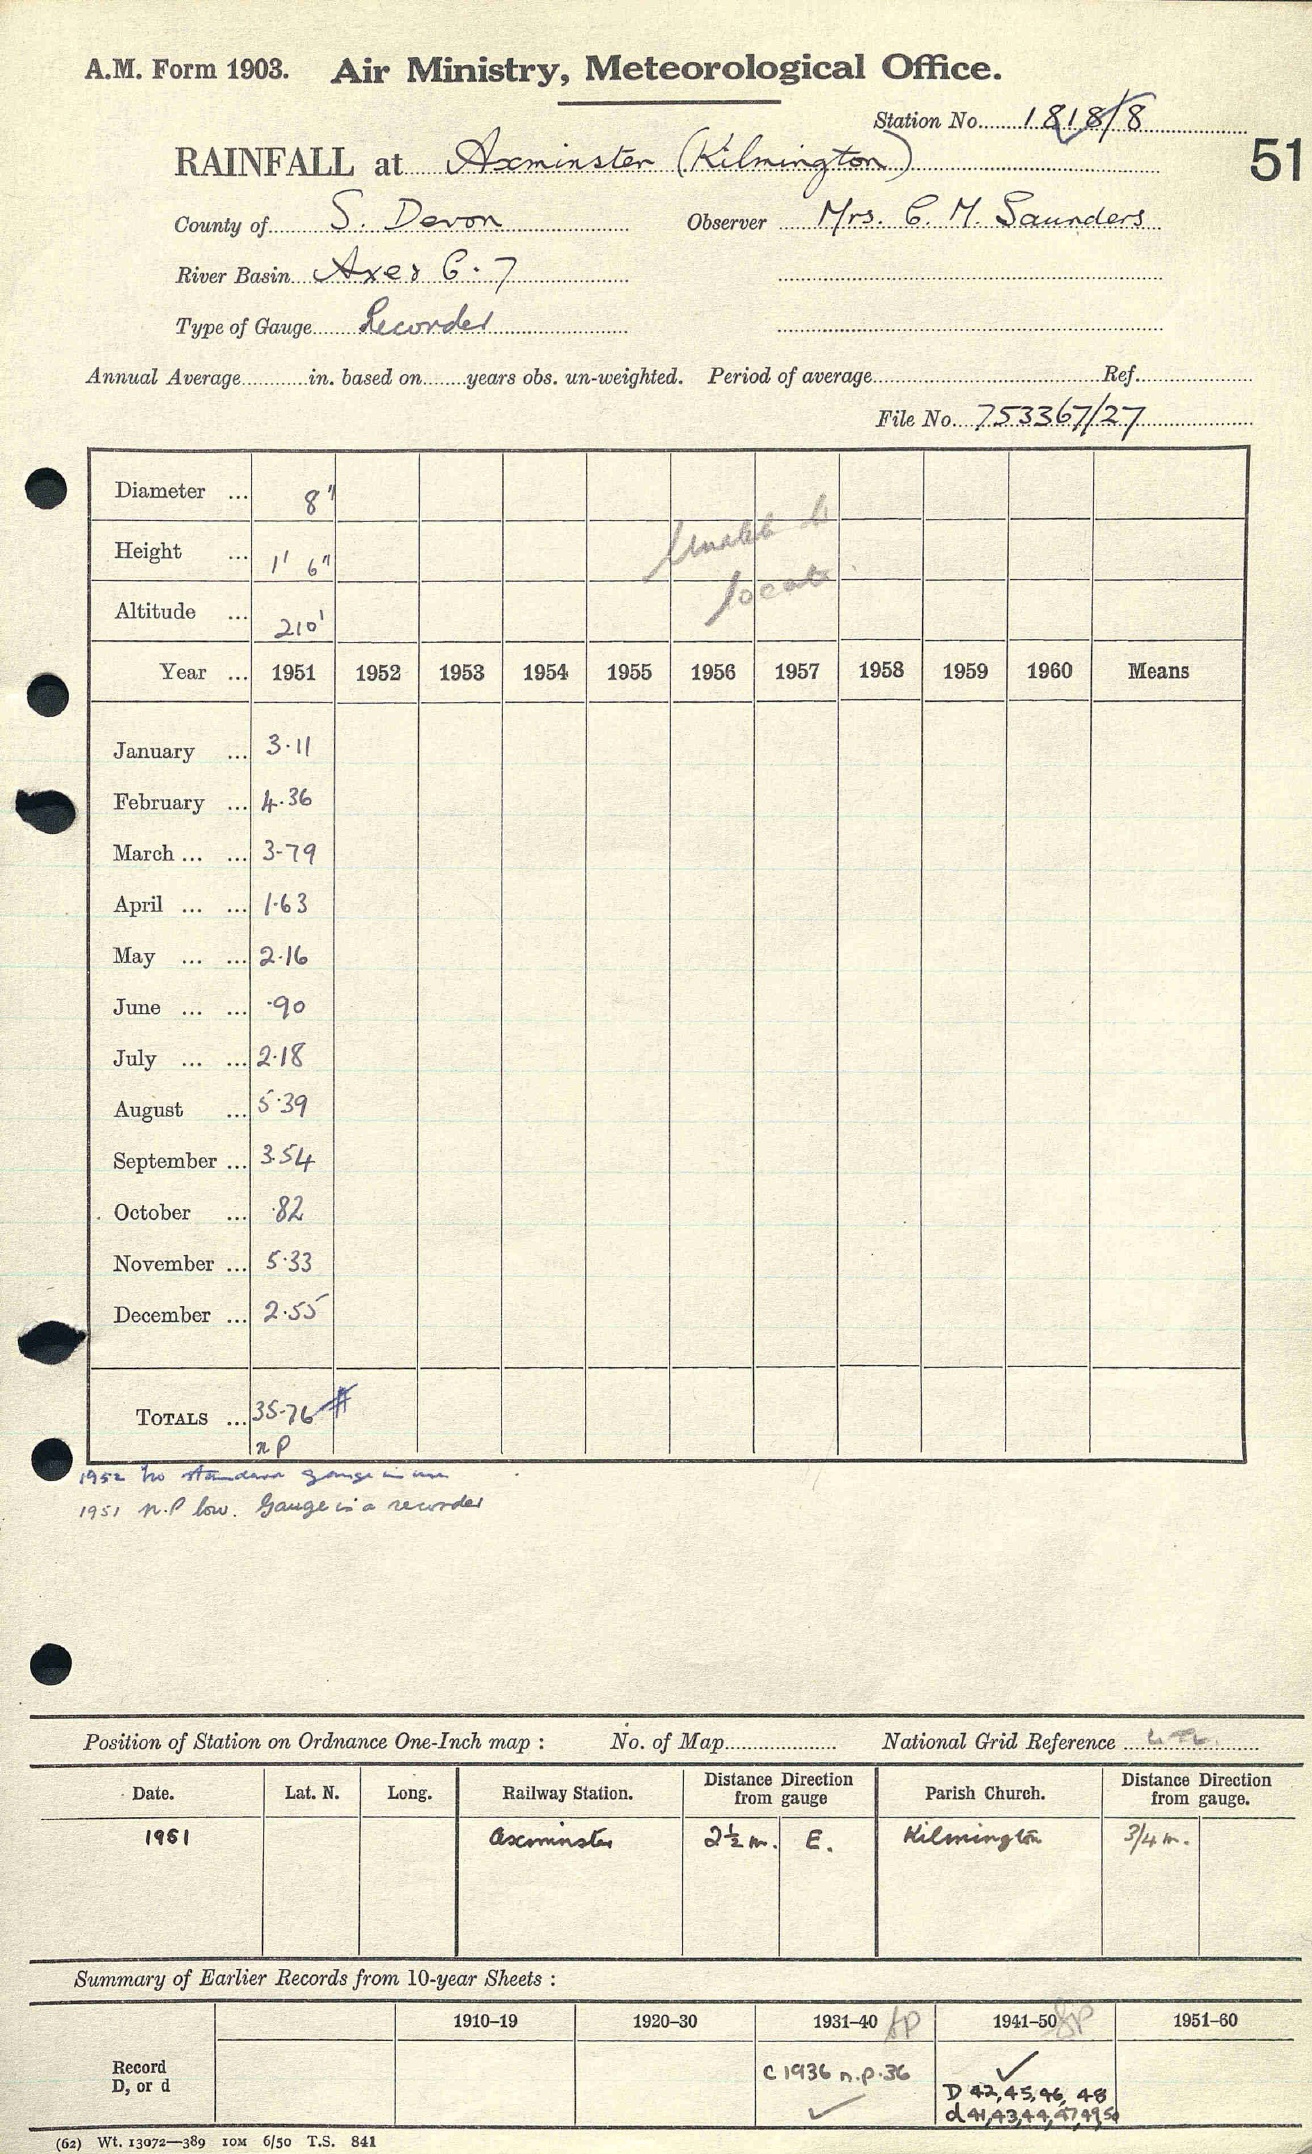 A.M. Form 1903. Air Ministry, Meteorological Office.
Station No. 1818/8
51
RAINFALL at Axminster (Kilmington)
County of S. Devon Observer Mrs. C. M. Saunders
River Basin Axe & C. 7
Type of Gauge Recorder
Annual Average in. based on years obs. un-weighted. Period of average Ref.
File No. 753367/27
Diameter ... 8"
Height ... 1' 6"
Unable to
locate
Altitude ... 210'
Year ... 1951 1952 1953 1954 1955 1956 1957 1958 1959 1960 Means
January ... 3·11
February ... 4·36
March ... ... 3-79
April ... ... 1·63
May ... ... 2·16
June ... ... ·90
July ... ... 2·18
August ... 5·39
September ... 3.54
October ... ·82
November ... 5·33
December ... 2·55
TOTALS ... 35-76 #
n P
1952 No standard gauge in use
1951 n.P low. Gauge is a recorder
Position of Station on Ordnance One-Inch map : No. of Map National Grid Reference
Date. Lat. N. Long. Railway Station. Distance Direction from gauge Parish Church. Distance Direction from gauge.
1951 Axminster 2½ m. E. Kilmington 3/4 m.
Summary of Earlier Records from 10-year Sheets :
1910–19 1920–30 1931–40 fp 1941–50 fp 1951–60
Record D, or d C 1936 n.p. 36 ✓ ✓
D 42, 45, 46, 48
d 41, 43, 44, 47, 49, 50
(62) Wt. 13072—389 10M 6/50 T.S. 841